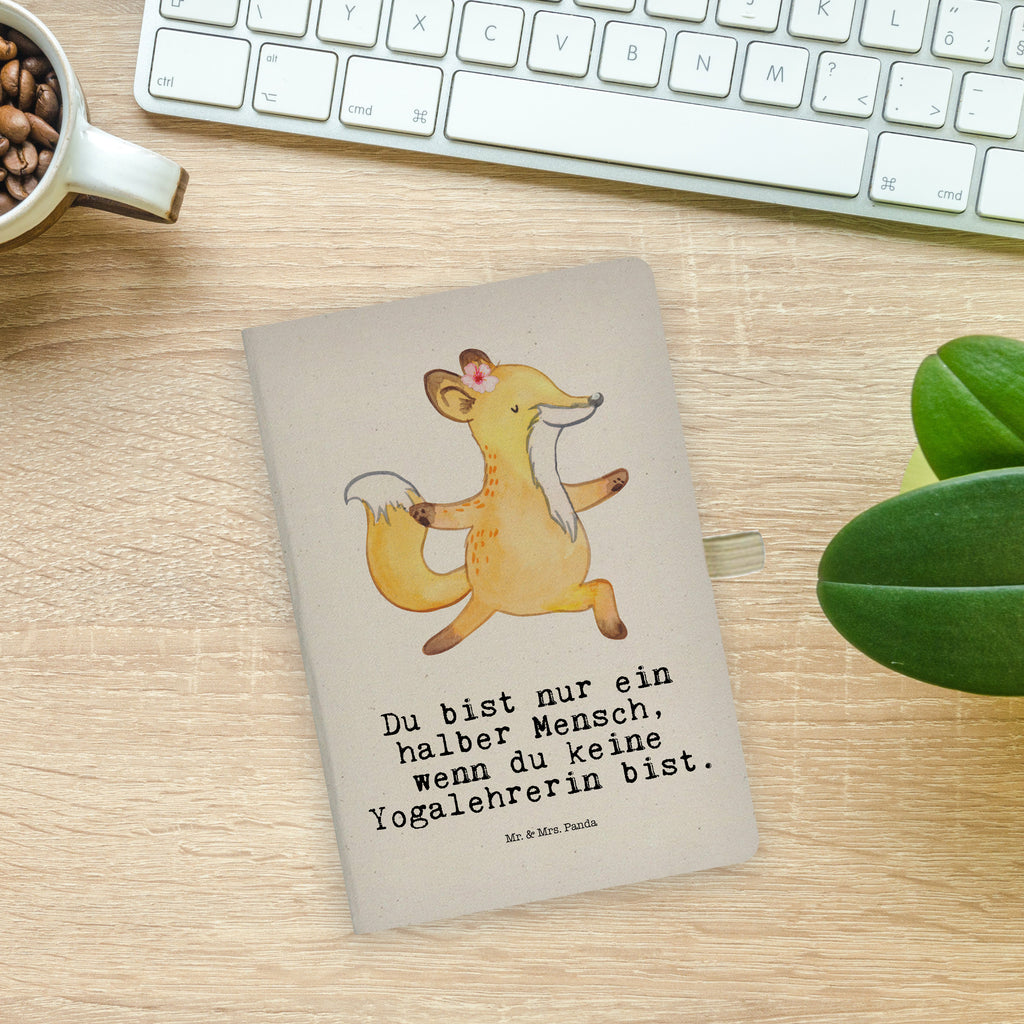 Y X C V B N M ? < : > - _
K L Ô
ctrl alt cmd ⌘ ⌘ cmd
Du bist nur ein
halber Mensch,
wenn du keine
Yogalehrerin bist.
Mr. & Mrs. Panda